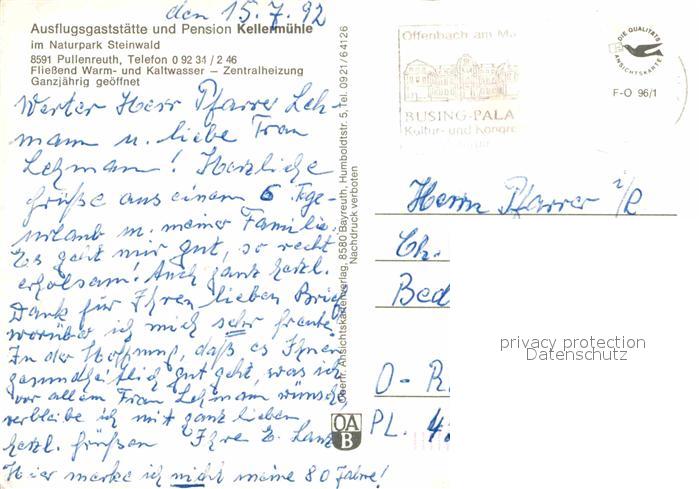 den 15.7.92
Ausflugsgaststätte und Pension Kellermühle
im Naturpark Steinwald
8591 Pullenreuth, Telefon 0 92 34 / 2 46
Fließend Warm- und Kaltwasser – Zentralheizung
Ganzjährig geöffnet
Werter Herr Pfarrer Leh-
mann u. liebe Frau
Lehmann! Herzliche
Grüße aus einem 6 Tge-
urlaub m. meiner Familie.
Es geht mir gut, so recht
erholsam! Auch ganz herzl.
Dank für Ihren lieben Brief
worüber ich mich sehr freute.
In der Hoffnung, daß es Ihnen
gesundheitlich gut geht, was ich
vor allem Frau Lehmann wünsche
verbleibe ich mit ganz lieben
herzl. Grüßen Ihre E. Lanz
Hier merke ich nicht meine 80 Jahre!
Oberfr. Ansichtskartenverlag, 8580 Bayreuth, Humboldtstr. 5, Tel. 0921/64126
Nachdruck verboten
OA
B
Offenbach am Ma
BUSING-PALA
Kultur- und Kongre
DIE QUALITÄTS
ANSICHTSKARTE
F-O 96/1
Herrn Pfarrer i/R
Ch.
Bed
O - R
PL. 4
privacy protection
Datenschutz